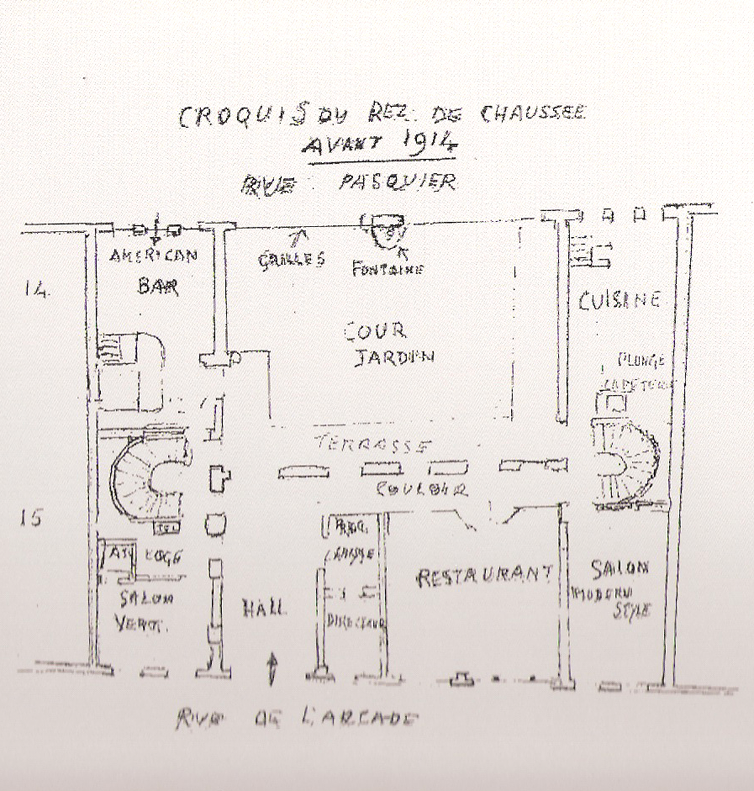 CROQUIS DU REZ. DE CHAUSSEE
AVANT 1914
RUE PASQUIER
AMERICAN
BAR
GRILLES
FONTAINE
14.
CUISINE
COUR
JARDIN
PLONGE
CAFETERIE
TERRASSE
COULOIR
15
TEL
LOGE
CAISSE
RESTAURANT
SALON
MODERN
STYLE
SALON
VERT.
HALL
DIRECTEUR
RUE DE L'ARCADE